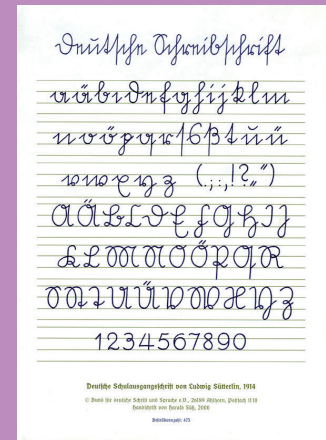 Deutsche Schreibschrift
a ä b c d e f g h i j k l m
n o ö p q r s ß t u ü
v w x y z (.,:;!?„")
A Ä B C D E F G H I J
K L M N O Ö P Q R
S T U Ü V W X Y Z
1 2 3 4 5 6 7 8 9 0
Deutsche Schulausgangsschrift von Ludwig Sütterlin, 1914
© Bund für deutsche Schrift und Sprache e.V., 26189 Ahlhorn, Postfach 11 10
Handschrift von Harald Süß, 2000